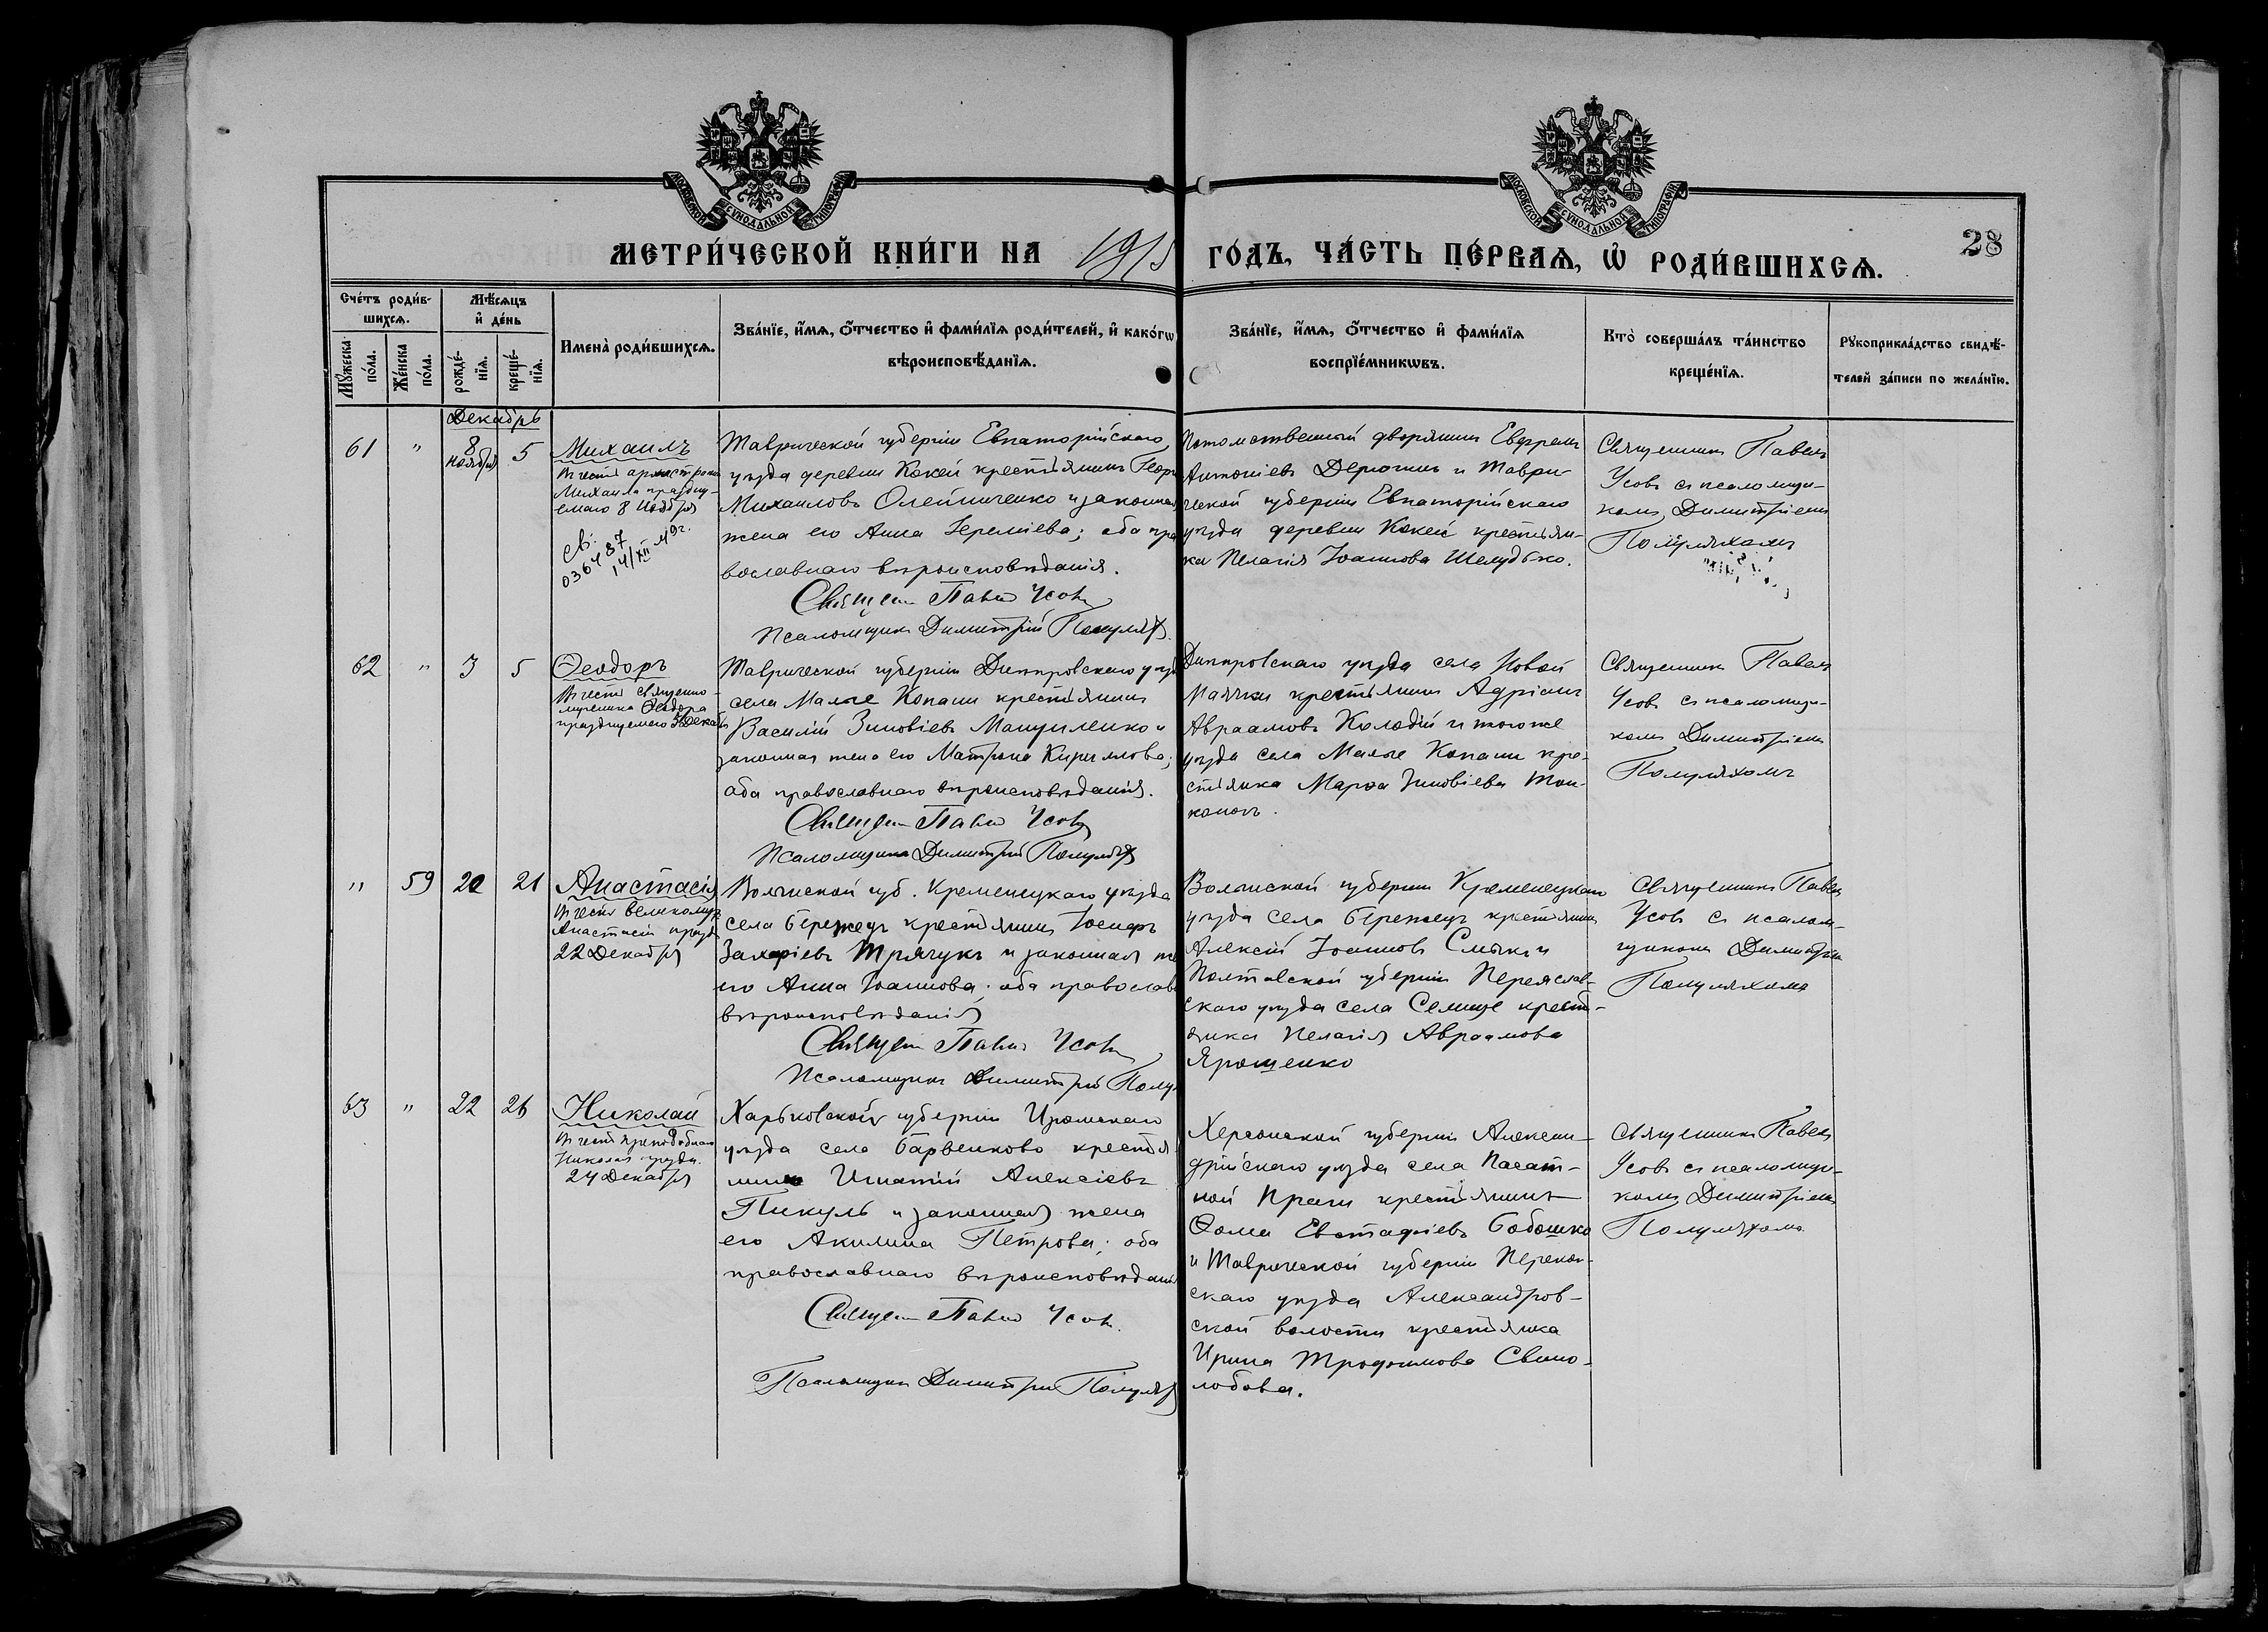 МОСКОВСКОЙ СѴНОДАЛЬНОЙ ТИПОГРАФІИ
МОСКОВСКОЙ СѴНОДАЛЬНОЙ ТИПОГРАФІИ
МЕТРИ́ЧЕСКОЙ КНИ́ГИ НА 1915
ГО́ДЪ, ЧА́СТЬ ПЕ́РВАЯ, Ѡ҆ РОДИ́ВШИХСЯ.
28
Сче́тъ роди́в-
шихся.
Мꙋ́жеска по́ла.
Же́нска по́ла.
Мѣ́сяцъ
и҆ де́нь
рожде́-
нїя.
креще́-
нїя.
Имена̀ роди́вшихся.
Зва́нїе, и҆́мя, ѻ҆́тчество и҆ фами́лїя роди́телей, и҆ како́гѡ
вѣроисповѣ́данїя.
Зва́нїе, и҆́мя, ѻ҆́тчество и҆ фами́лїя
воспрїе́мникѡвъ.
Кто̀ соверша́лъ та́инство
креще́нїя.
Рꙋкоприкла́дство свидѣ́-
телей за́писи по жела́нїю.
Декабрь
61 " 8 ноября 5
Михаилъ
Въ честь архистратига
Михаила праздну-
емаго 8 Ноября
св:
036487
14/XII 49г.
Таврической губерніи Евпаторійскаго
уѣзда деревни Кокей крестьянинъ Геор
Михаиловъ Олейниченко и законная
жена его Анна Іереміева; оба пра
вославнаго вѣроисповѣданія.
Священ Павелъ Усовъ
Псаломщикъ Димитрій Полулях
Потомственный дворянинъ Ефремъ
Антоніевъ Дерюгинъ и Таври-
ческой губерніи Евпаторійскаго
уѣзда деревни Кокей крестьян-
ка Пелагія Іоаннова Шелудько.
Священникъ Павелъ
Усовъ съ псаломщи-
комъ Димитріемъ
Полуляхомъ
62 " 3 5
Ѳеодоръ
Въ честь священно-
мученика Ѳеодора
празднуемаго 3 Декабр
Таврической губерніи Днѣпровскаго уѣзд
села Малые Копани крестьянинъ
Василій Зиновіевъ Мащиленко и
законная жена его Матрона Кириллова;
оба православнаго вѣроисповѣданія.
Священ Павелъ Усовъ
Псаломщикъ Димитрій Полулях
Днѣпровскаго уѣзда села Новой
Маячки крестьянинъ Адріанъ
Авраамовъ Колодій и того же
уѣзда села Малые Копани кре-
стьянка Марѳа Зиновіева Тон-
коногъ.
Священникъ Павелъ
Усовъ съ псаломщи-
комъ Димитріемъ
Полуляхомъ
" 59 20 21
Анастасія
Въ честь великомуч
Анастасіи празд
22 Декабря
Волынской губ. Кременецкаго уѣзда
села Бережецъ крестьянинъ Іосифъ
Захаріевъ Трячукъ и законная же
его Анна Іоаннова; оба православ
вѣроисповѣданія
Священ Павелъ Усовъ
Псаломщикъ Димитрій Полу
Волынской губерніи Кременецкаго
уѣзда села Бережецъ крестьянинъ
Алексій Іоанновъ Смыкъ и
Полтавской губерніи Переяслав-
скаго уѣзда села Селище кресть-
янка Пелагія Авраамова
Ярошенко
Священникъ Павелъ
Усовъ съ псалом-
щикомъ Димитріем
Полуляхомъ
63 " 22 26
Николай
Въ честь преподобнаго
Николая праздн.
24 Декабря
Харьковской губерніи Изюмскаго
уѣзда село Барвенково крестья
нинъ Игнатій Алексіевъ
Пикуль и законная жена
его Акилина Петрова; оба
православнаго вѣроисповѣданія
Священ Павелъ Усовъ.
Псаломщикъ Димитрій Полулях
Херсонской губерніи Алексан-
дрійскаго уѣзда села
ной Праги крестьянинъ
Ѳома Евстафіевъ Бобошко
и Таврической губерніи Перекоп-
скаго уѣзда Александров-
ской волости крестьянка
Ирина Трофимова Свино-
лобова.
Священникъ Павелъ
Усовъ съ псаломщи-
комъ Димитріемъ
Полуляхомъ